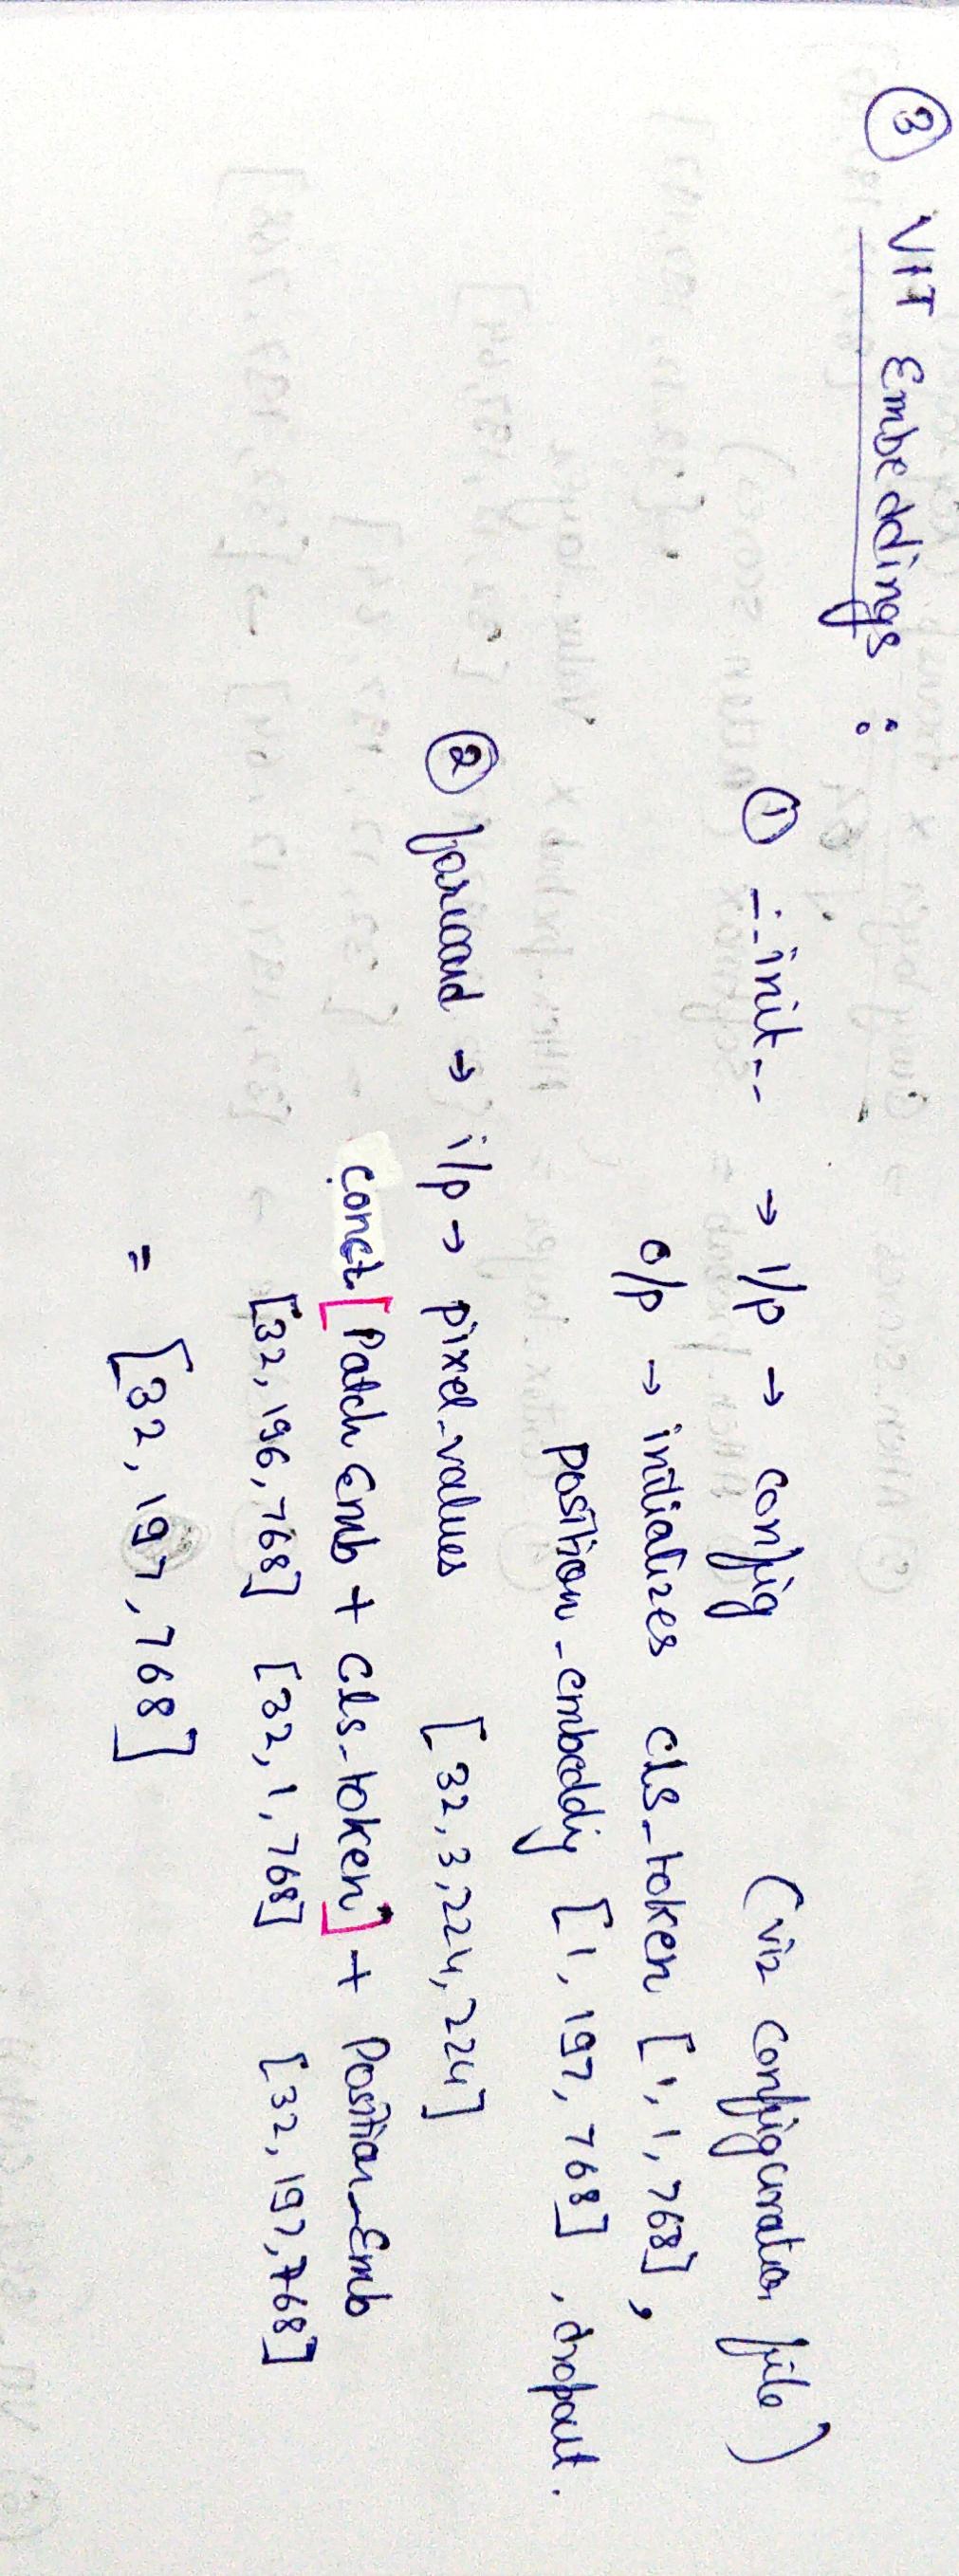 ③ VIT Embeddings :
① __init__ → i/p → config (via configuration file)
o/p → initializes cls_token [1, 1, 768],
position_embeddig [1, 197, 768] , dropout.
② forward → i/p → pixel_values [32, 3, 224, 224]
conct [Patch Emb + cls_token] + Position_Emb
[32, 196, 768] [32, 1, 768] [32, 197, 768]
= [32, 197, 768]